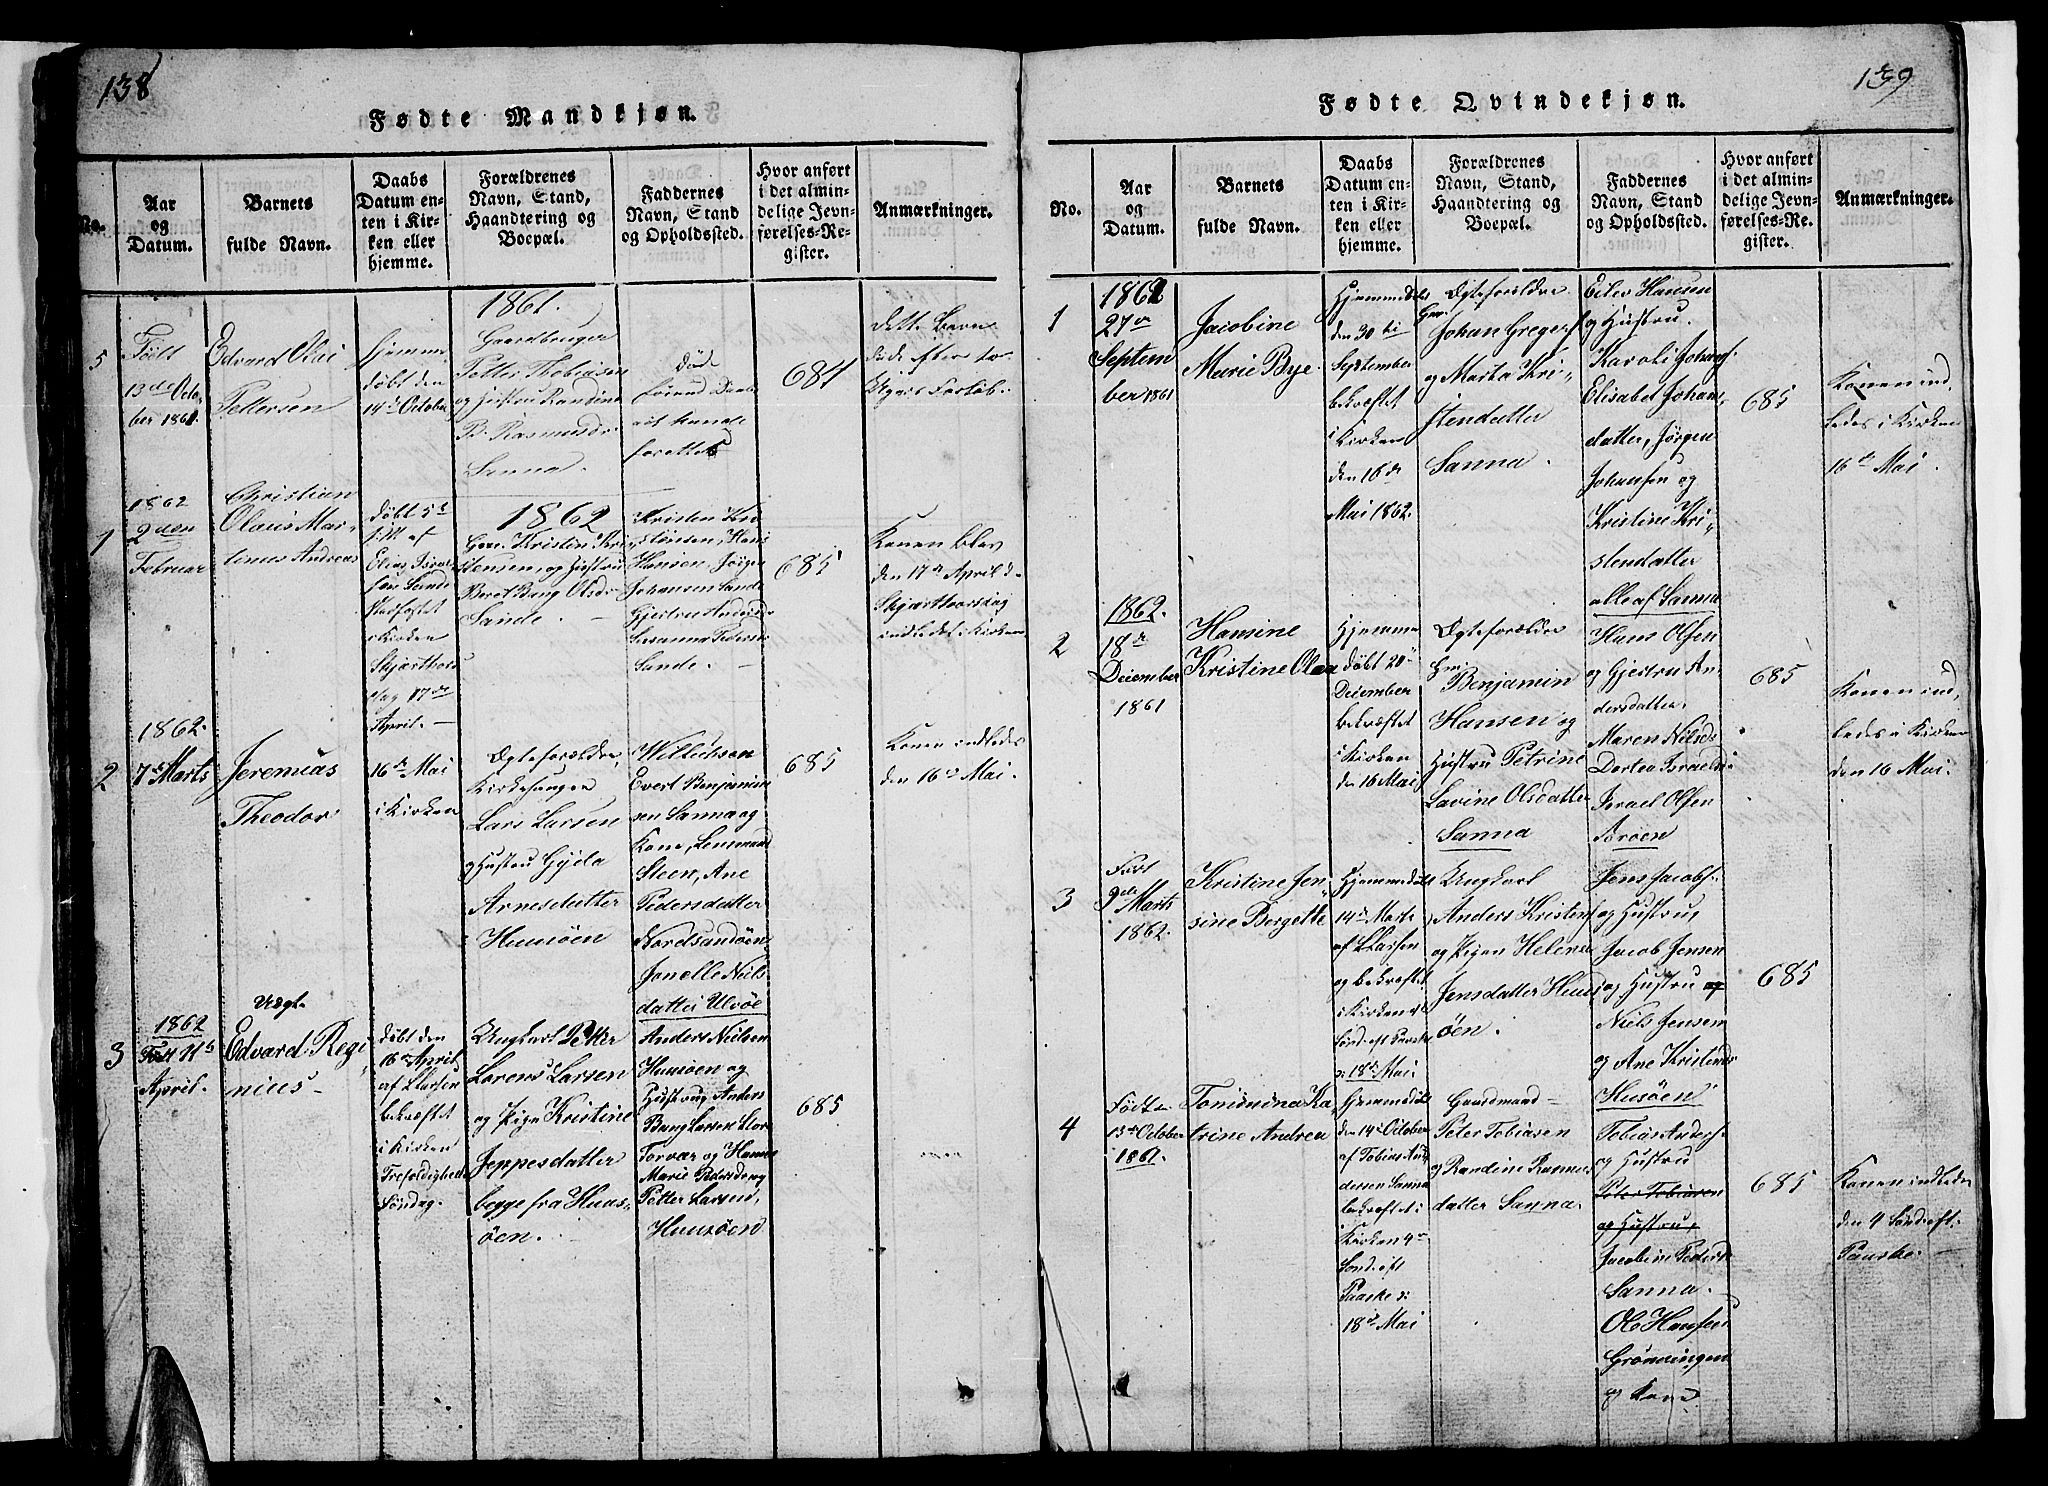 138
Fødte Mandkjøn.
No.
Aar
og
Datum.
Barnets
fulde Navn.
Daabs
Datum en-
ten i Kir-
ken eller
hjemme.
Forældrenes
Navn, Stand,
Haandtering og
Boepæl.
Faddernes
Navn, Stand
og Opholdssted.
Hvor anført
i det almin-
delige Jevn-
førelses-Re-
gister.
Anmærkninger.
5
Født
13de Octo,
ber 1861.
Edvard Olai
Pettersen
hjemme
døbt den
14de October
1861.
Gaardbruger
Petter Thobiasen
og Hustru Randine
B. Rasmusdr
Sanna.
død
førend Daab
684
dette Barn
døde efter
1
1862
2den
Februar
Christian
Olaus Mar-
tinus Andreas
døbt 5te
af
Elias
i Kirken
Skjærthors
dag 17de
April.
1862
Kristen Kri
stensen, og Hustru
Beret Bang Olsdr
Sande.
Kristen Kri
stensen, Hans
Hansen, Jørgen
Johansen Sande
Gjertru Andersdr
Susanna Peders
Sande.
685
Konen blev
den 17de April
Skjærthorsdag
indledet i Kirken
2
1862.
7de Marts
Jeremias
Theodor
16de Mai
i Kirken
Ægteforældre
Kirkesanger
Lars Larsen
og Hustru Gjida
Arnesdatter
Huusøen
Willichsen
Evert Benjamin
sen Sanna og
Kone, Lensmand
Steen, Ane
Pedersdatter
Nordsandøen
Jonelle Niels-
datter Ulvøe
685
Konen indledes
den 16de Mai.
3
1862
Født 11te
April.
Uægte
Edvard Regi,
nius
døbt den
16de April
af L Larsen
bekræftet
i Kirken
Trefoldigheds
Søndag.
Ungkarl Petter
Lorens Larsen
og Pigen Kristine
Jeppesdatter
begge fra Huus-
øen.
Anders Nielsen
Huusøen og
Hustrug Anders
Bang Larsen Stor
Torvær og Hanna
Marie Pedersdr og
Petter Larsen,
Huusøen
685
139
Fødte Qvindekjøn.
No.
Aar
og
Datum.
Barnets
fulde Navn.
Daabs
Datum en-
ten i Kir-
ken eller
hjemme.
Forældrenes
Navn, Stand,
Haandtering og
Boepæl.
Faddernes
Navn, Stand
og Opholdssted.
Hvor anført
i det almin-
delige Jevn-
førelses-Re-
gister.
Anmærkninger.
1
1862
27de
Septem
ber 1861
Jacobine
Marie Bye.
Hjemmedøbt
den 30te
September
bekræftet
i Kirken
den 16de
Mai 1862.
Ægteforældre
Gm.
Johan Gregers
og Marta Kri-
stendatter
Sanna.
Eiler Hansen
og Hustru.
Karoli Johans
Elisabet Johans
datter, Jørgen
Johansen og
Kristine Kri-
stendatter
alle af Sanna
685
Konen ind,
ledes i Kirken
16de Mai.
2
1862.
18de
December
1861
Hansine
Kristine Olea
Hjemme
døbt 20de
December
bekræftet
i Kirken
den 16 Mai
Ægteforældre
Gm.
Benjamin
Hansen og
Hustru Petrine
Lavine Olsdatter
Sanna
Hans Olsen
og Gjertru An
dersdatter.
Maren Nilsd
Dortea Israelsd
Israel Olsen
Brøen
685
Konen ind,
ledes i Kirken
den 16 Mai.
3
Født
9de Marts
1862.
Kristine Jen-
sine Bergette
Hjemmedøbt
14de Marts
af L Larsen
og bekræftet
i Kirken 4de
Sønd. eft Paaske
18de Mai
Ungkarl
Anders Kristens
og Pigen Helene
Jensdatter Huus
øen.
Jens Jacobs.
og Hustru,
Jacob Jensen
og Hustru og
Niels Jensen
og Ane Kristensd
Husøen
685
4
Født
13de October
1861.
Tominina Ka,
trine Andrea
Hjemmedøbt
den 14de October
af Tobias An
dersen Sanna
bekræftet i
Kirken 4de
Sønd. eft
Paaske
18de Mai
Gaardmand
Peter Tobiasen
og Randine Rasmus
datter Sanna.
Tobias Anders.
og Hustru
Peter Tobiasen
og Hustru,
Jacobine Pedersd
Sanna.
Ole Hansen
Grønningen
og Kone
685
Konen indledes
den 4 Sønd. eft.
Paaske.